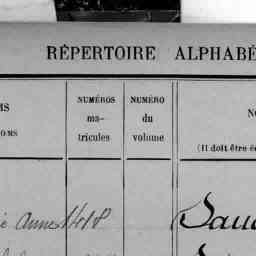 RÉPERTOIRE ALPHABÉ
MS
OMS
NUMÉROS
ma-
tricules
NUMÉRO
du
volume
N
(Il doit être é
ie Anne 1418
Sau